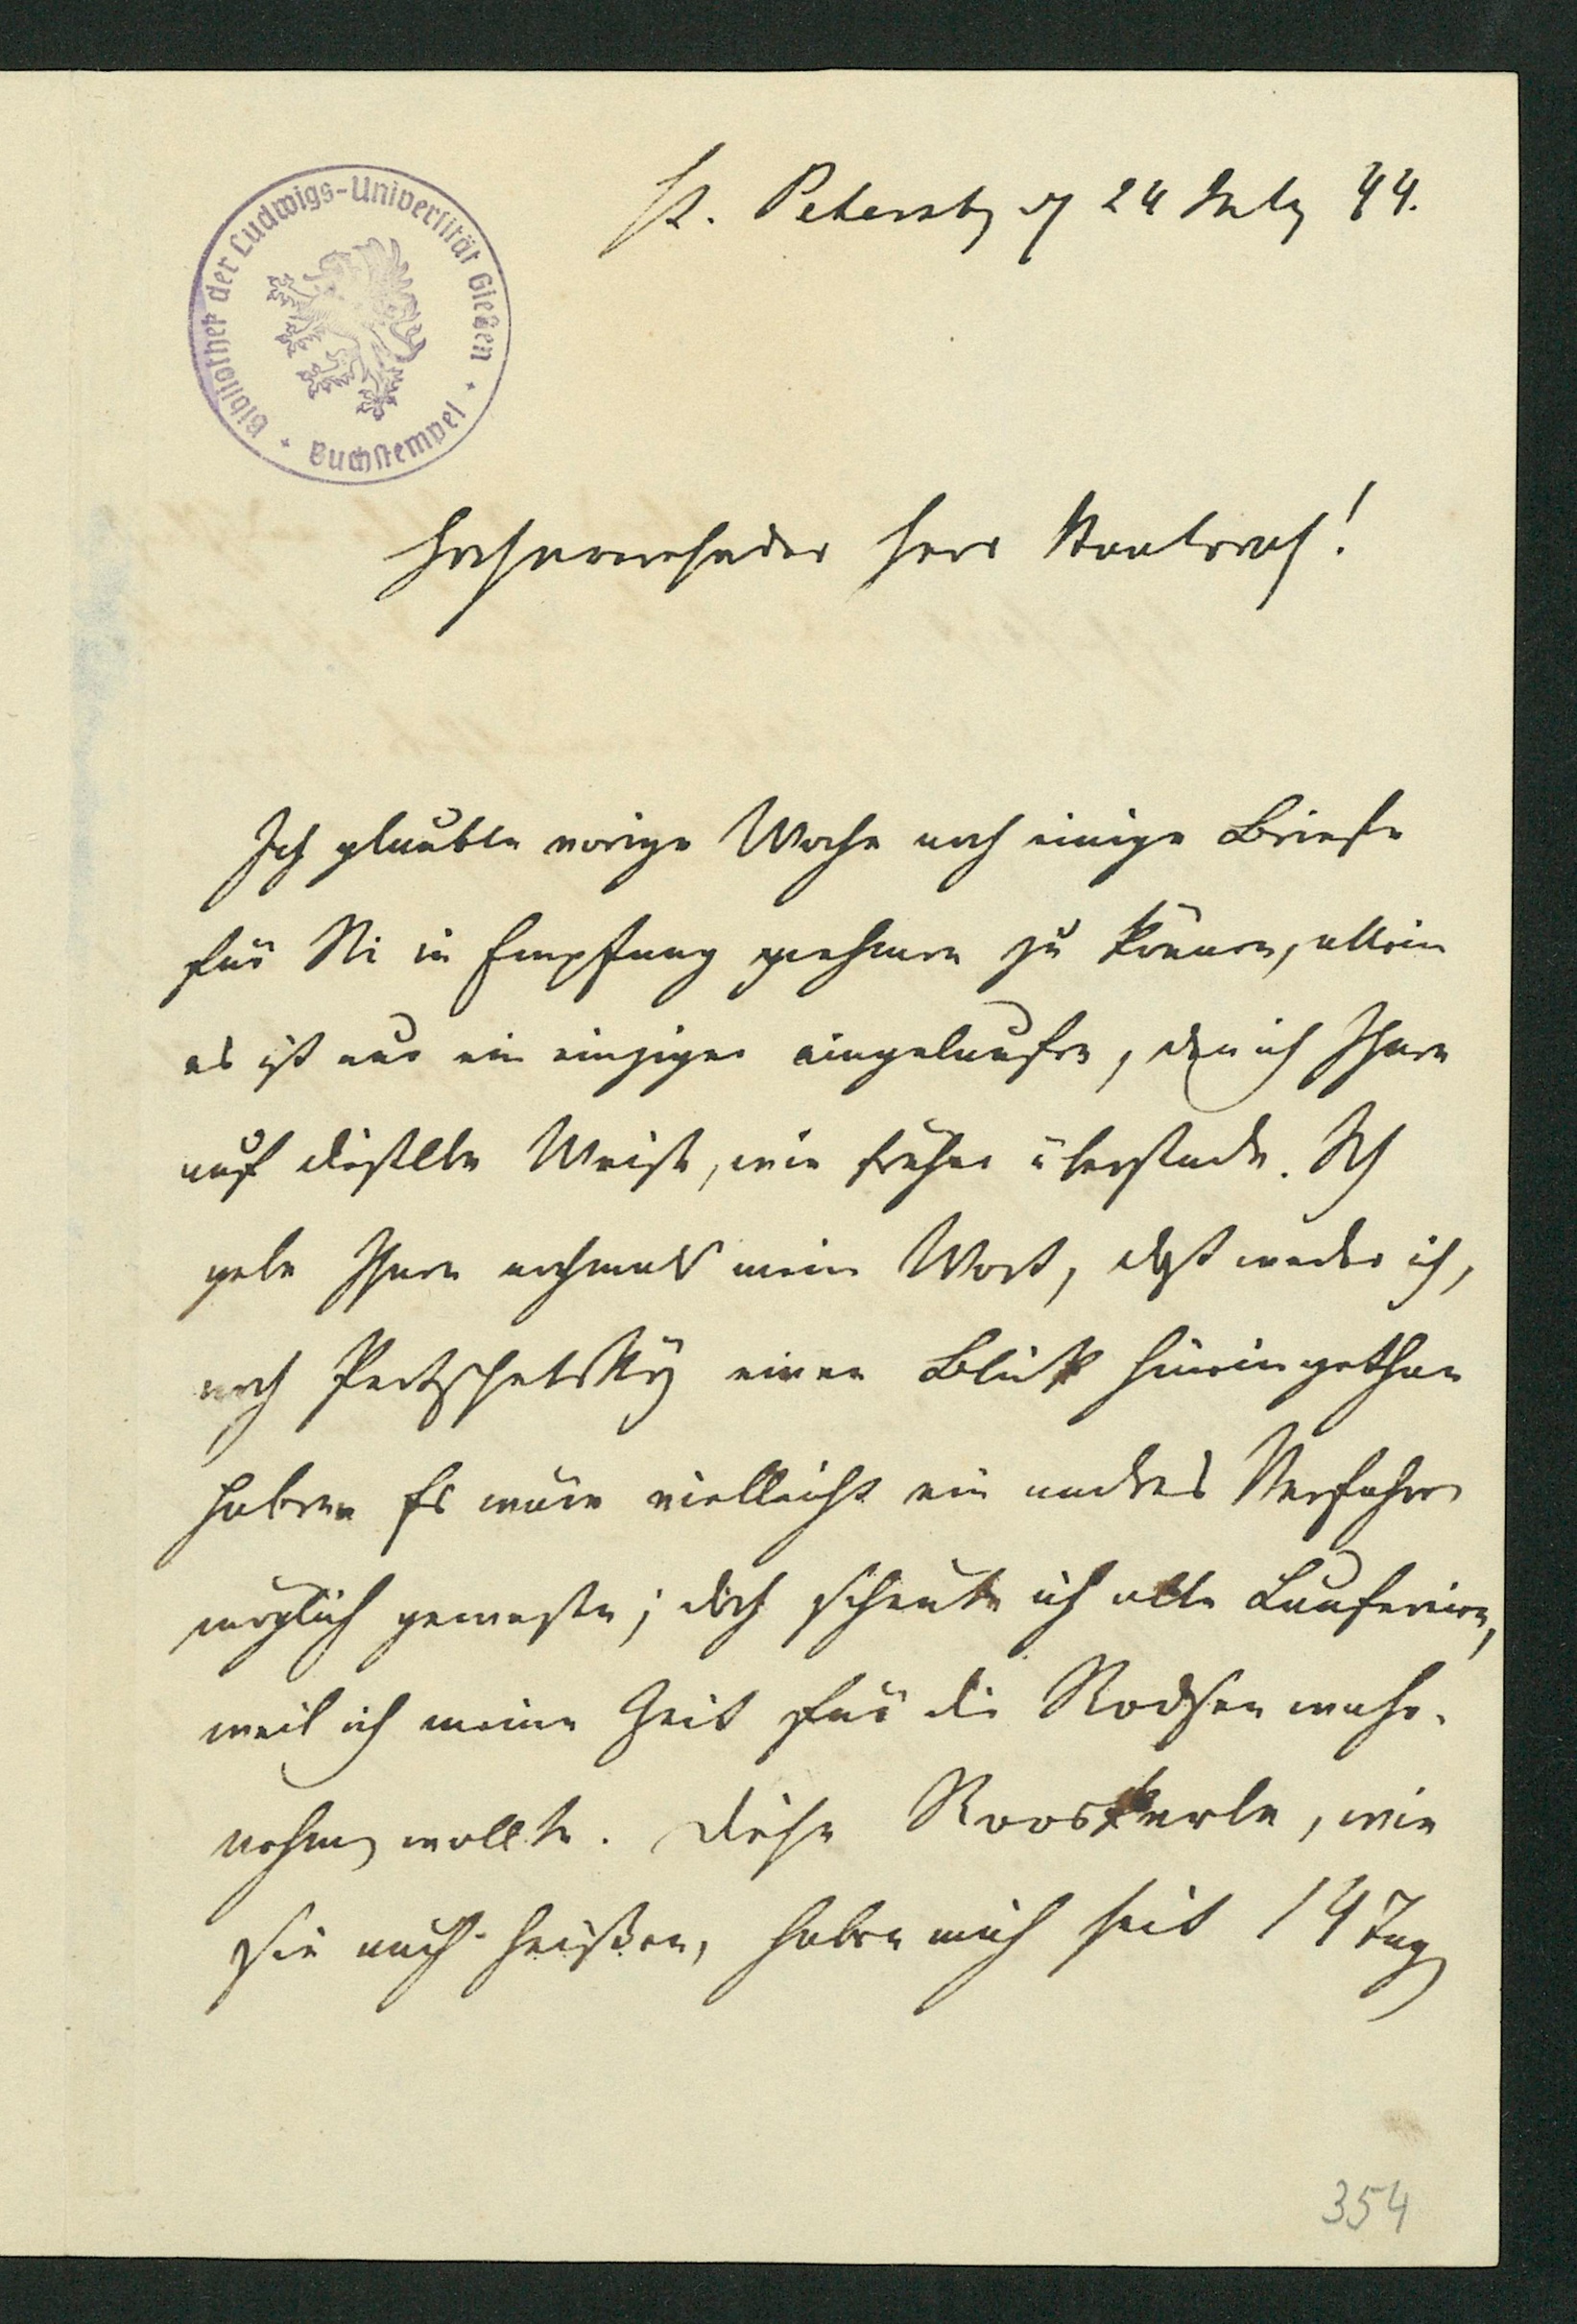 Bibliothek der Ludwigs-Universität Gießen
Buchstempel
St. Petersbg d 24 July 44.
Hochzuverehrender Herr Staatsrath!
Ich glaubte vorige Woche noch einige Briefe
für Sie in Empfang nehmen zu können, allein
es ist nur ein einziger eingelaufen, den ich Ihnen
auf dieselbe Weise, wie früher übersende. Ich
gebe Ihnen nochmals mein Wort, daß weder ich,
noch einen Blick hineingethan
haben. Es wäre vielleicht ein andres Verfahren
möglich gewesen; doch scheute ich alle Laufereien,
weil ich meine Zeit für die wahr-
nehmen wollte. Diese, wie
sie auch heißen, haben mich seit 14 Tag
354